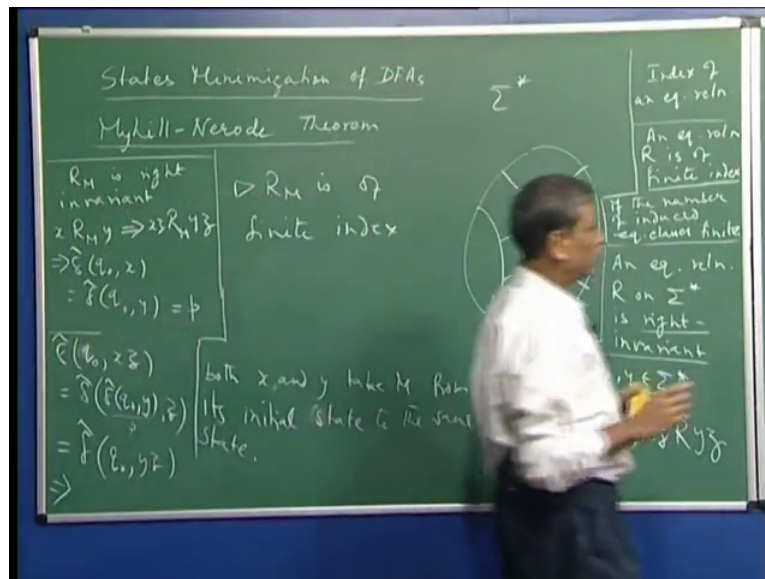 States Minimization of DFAs
Myhill-Nerode Theorem
Σ*
R_M is right
invariant
x R_M y ⇒ xz R_M yz
⇒ δ̂(q₀, x)
= δ̂(q₀, y) = p
δ̂(q₀, xz)
= δ̂(δ̂(q₀, y), z)
p
= δ̂(q₀, yz)
⇒
▷ R_M is of
finite index
both x, and y take M from
its initial state to the same
state.
Index of
an eq. reln.
An eq. reln
R is of
finite index
if the number
of induced
eq. classes finite
An eq. reln.
R on Σ*
is right-
invariant
, y ∈ Σ*
R yz